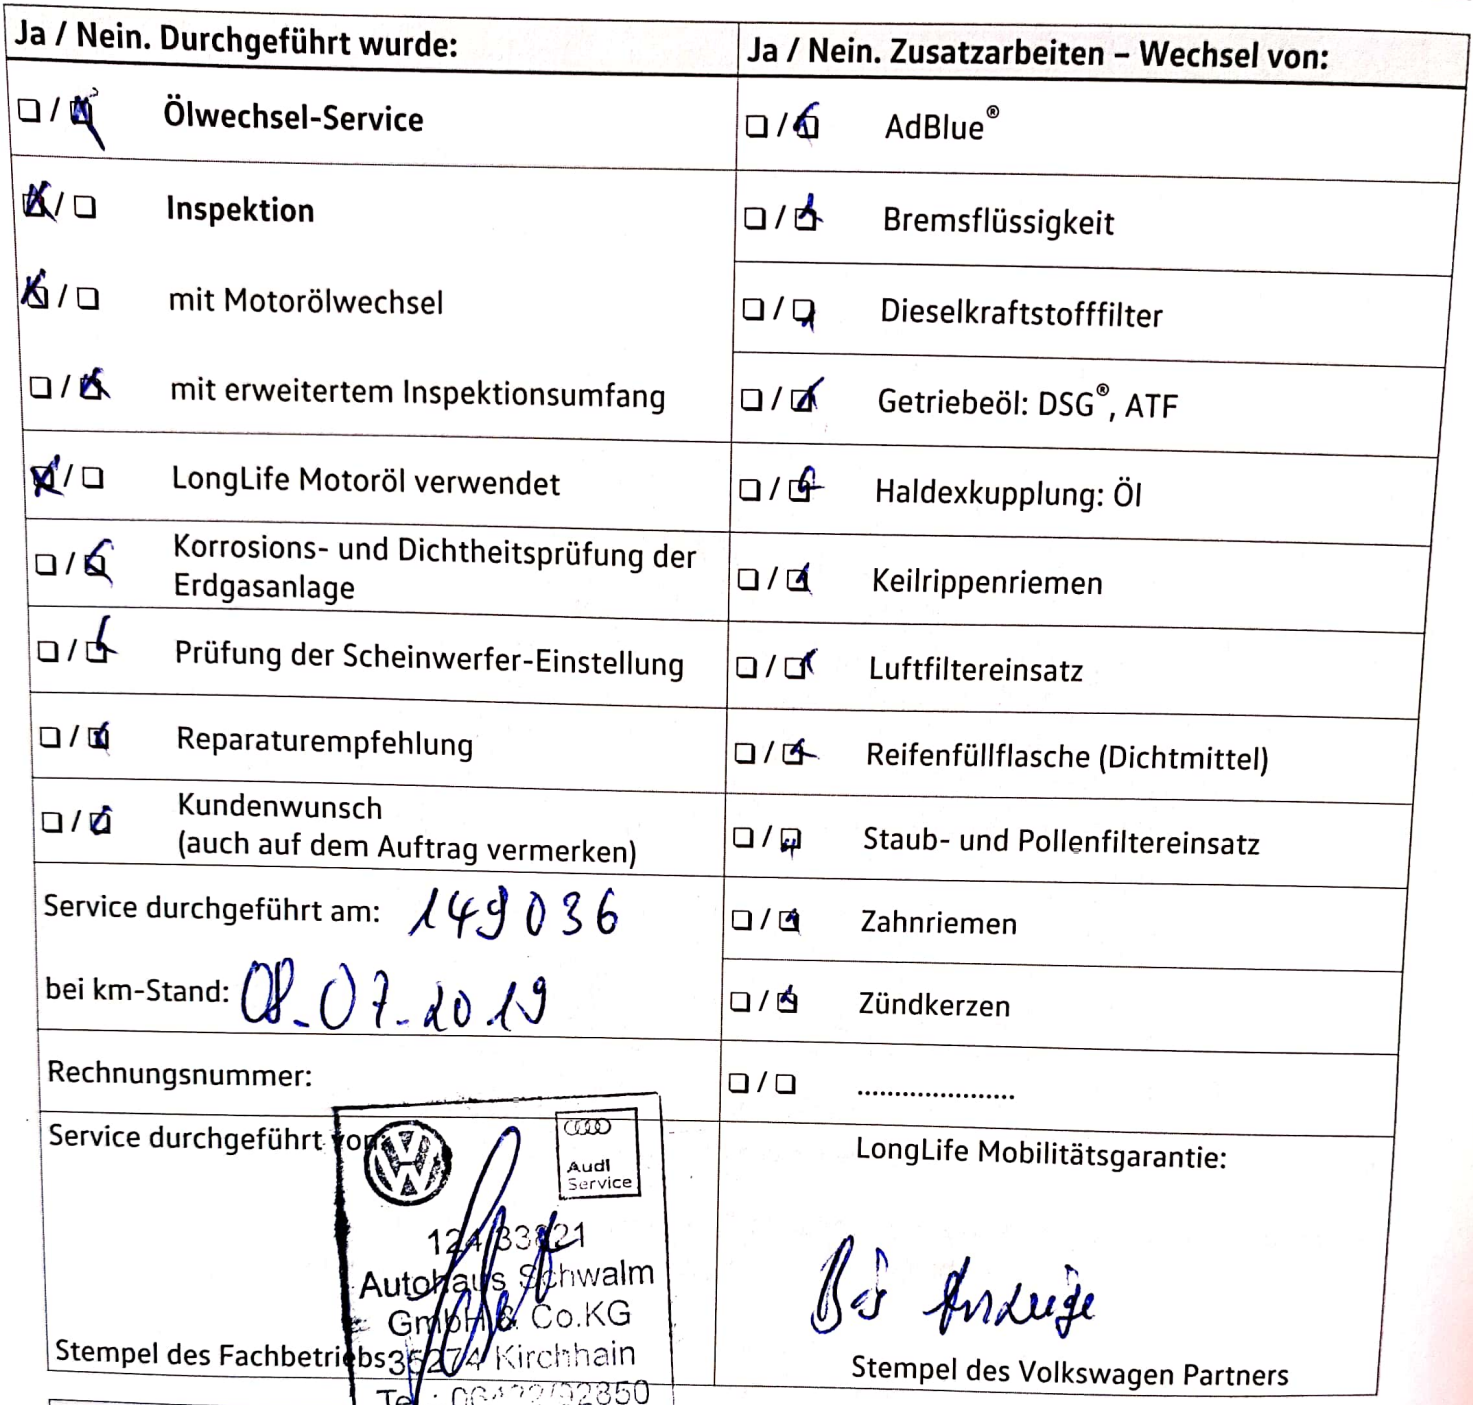 Ja / Nein. Durchgeführt wurde:
Ölwechsel-Service
Inspektion
mit Motorölwechsel
mit erweitertem Inspektionsumfang
LongLife Motoröl verwendet
Korrosions- und Dichtheitsprüfung der
Erdgasanlage
Prüfung der Scheinwerfer-Einstellung
Reparaturempfehlung
Kundenwunsch
(auch auf dem Auftrag vermerken)
Service durchgeführt am: 149036
bei km-Stand: 08.07.2019
Rechnungsnummer:
Service durchgeführt von
Audi
Service
Autohaus Schwalm
GmbH & Co.KG
35274 Kirchhain
Stempel des Fachbetriebs
Ja / Nein. Zusatzarbeiten – Wechsel von:
AdBlue®
Bremsflüssigkeit
Dieselkraftstofffilter
Getriebeöl: DSG®, ATF
Haldexkupplung: Öl
Keilrippenriemen
Luftfiltereinsatz
Reifenfüllflasche (Dichtmittel)
Staub- und Pollenfiltereinsatz
Zahnriemen
Zündkerzen
.....................
LongLife Mobilitätsgarantie:
Bis Anzeige
Stempel des Volkswagen Partners